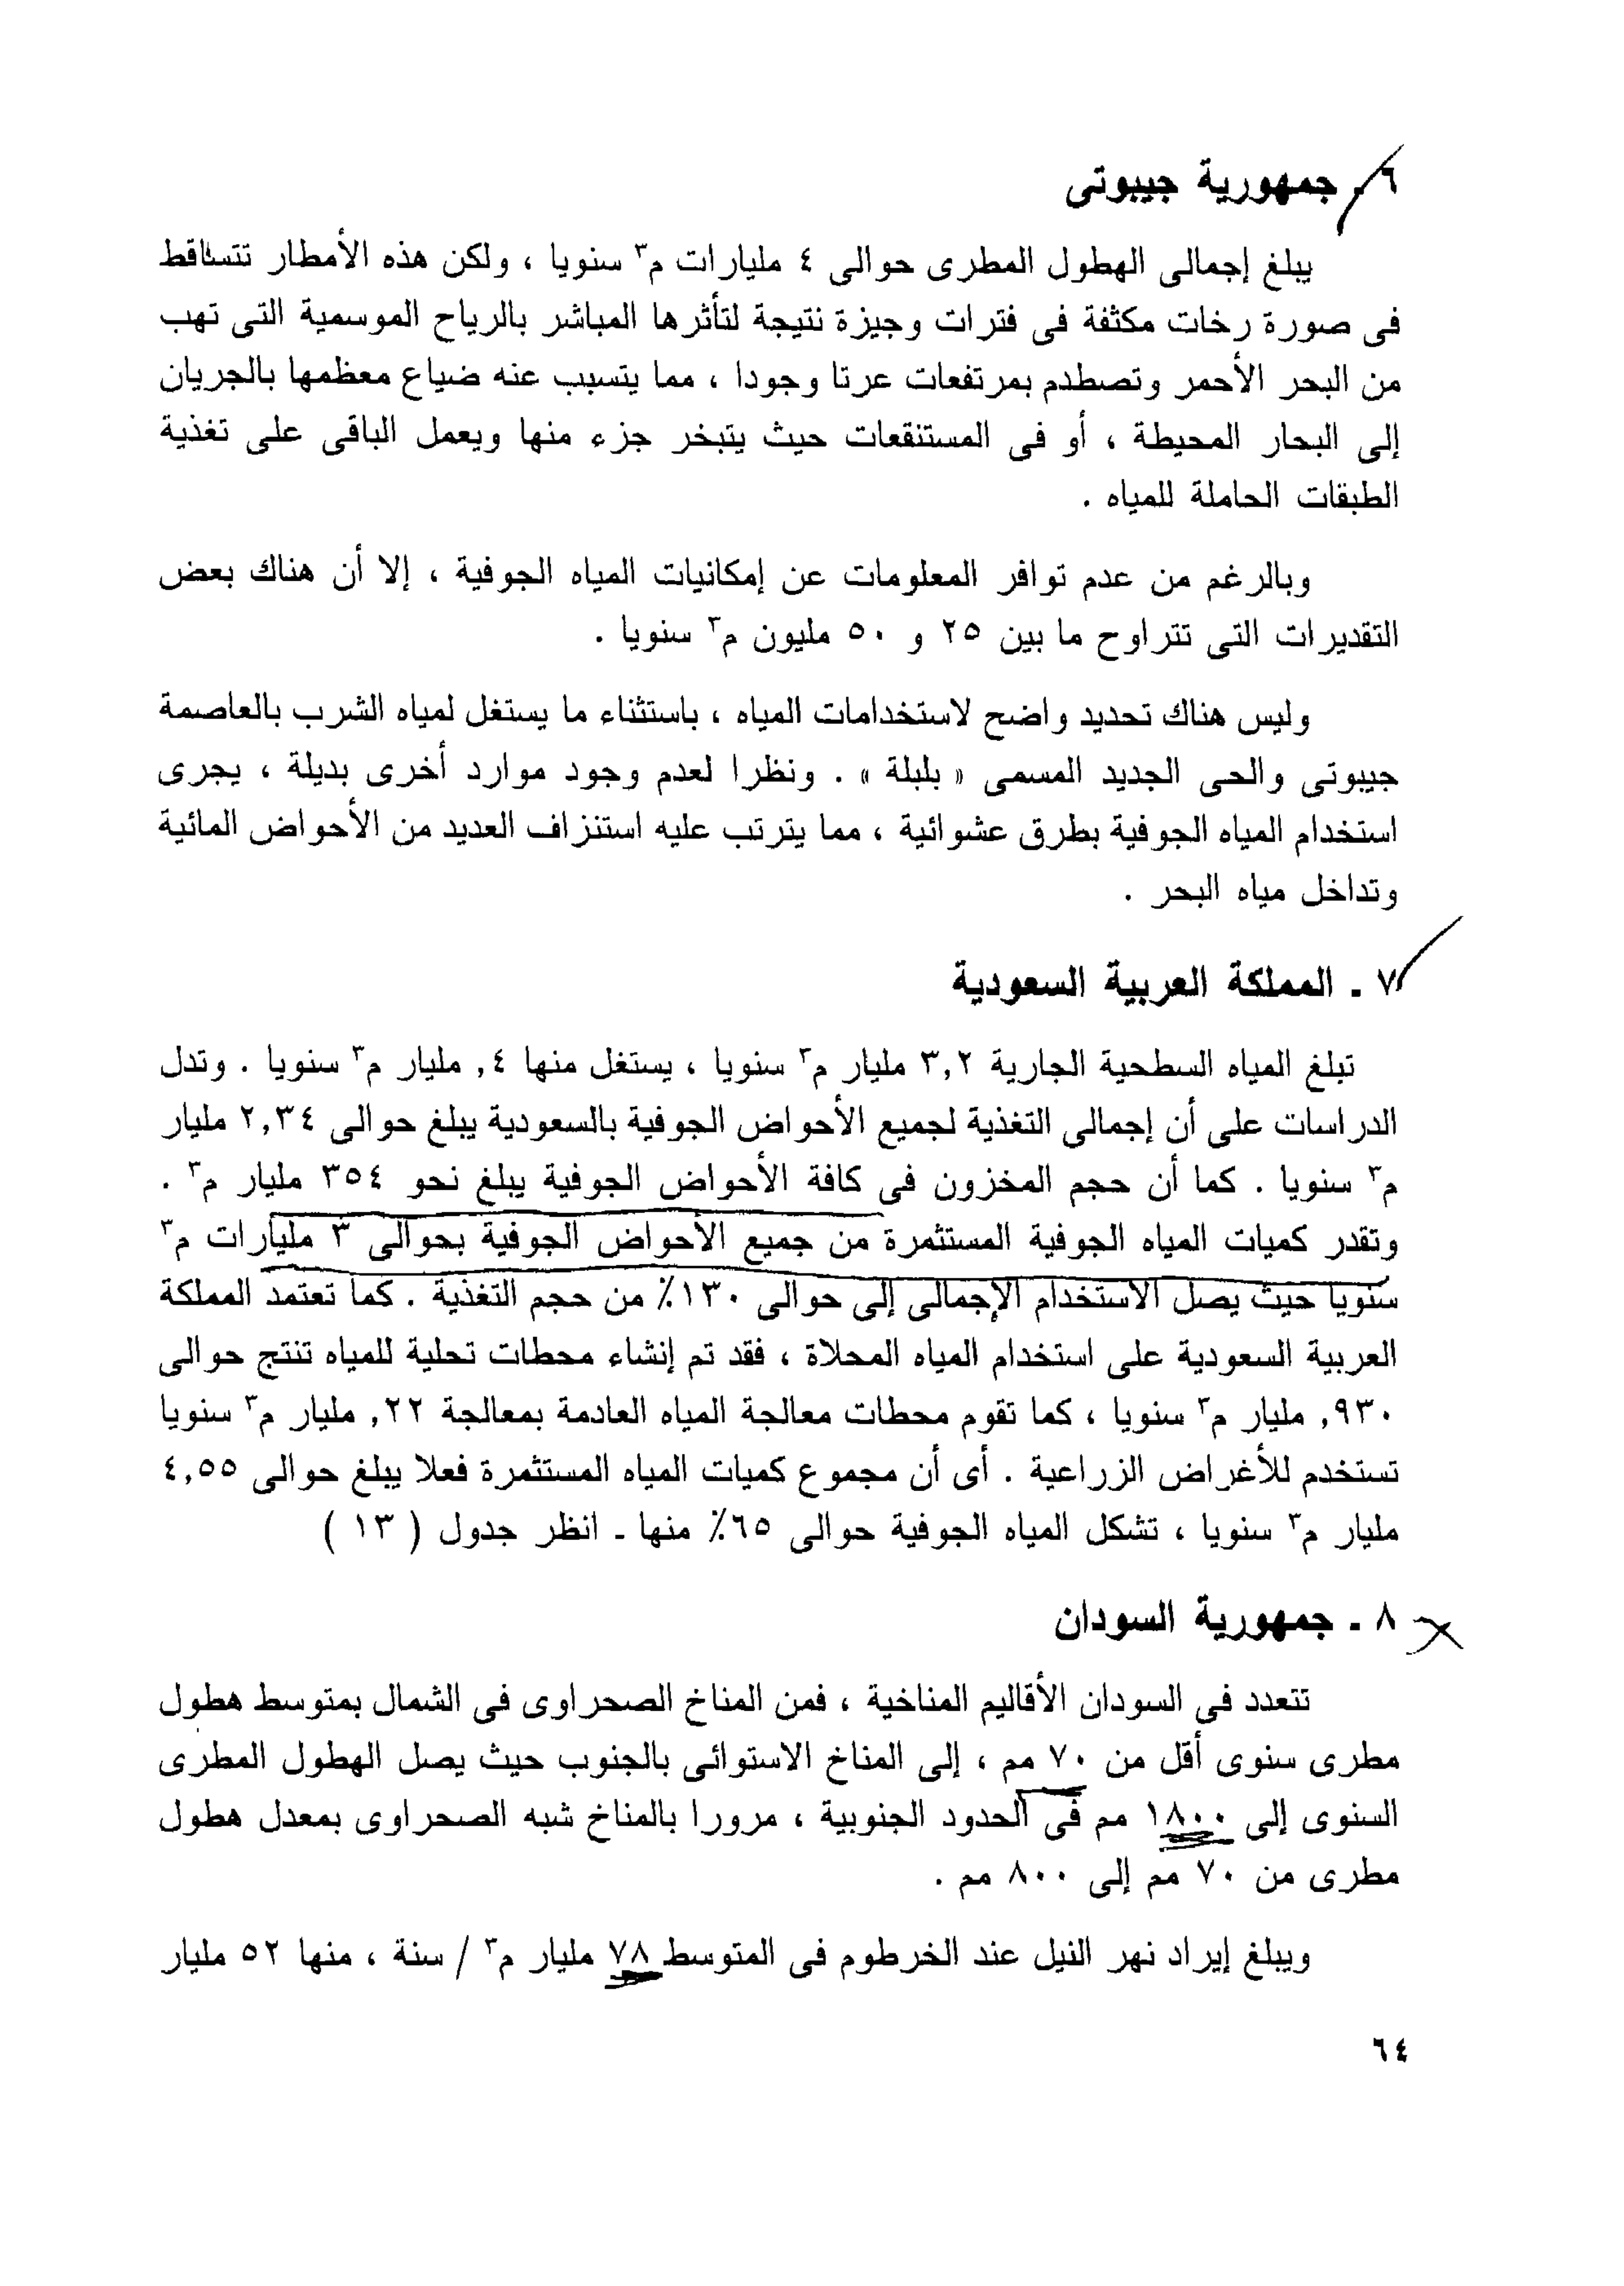 ٦ ـ جمهورية جيبوتى
يبلغ إجمالى الهطول المطرى حوالى ٤ مليارات م٣ سنويا ، ولكن هذه الأمطار تتساقط
فى صورة رخات مكثفة فى فترات وجيزة نتيجة لتأثرها المباشر بالرياح الموسمية التى تهب
من البحر الأحمر وتصطدم بمرتفعات عرتا وجودا ، مما يتسبب عنه ضياع معظمها بالجريان
إلى البحار المحيطة ، أو فى المستنقعات حيث يتبخر جزء منها ويعمل الباقى على تغذية
الطبقات الحاملة للمياه .
وبالرغم من عدم توافر المعلومات عن إمكانيات المياه الجوفية ، إلا أن هناك بعض
التقديرات التى تتراوح ما بين ٢٥ و ٥٠ مليون م٣ سنويا .
وليس هناك تحديد واضح لاستخدامات المياه ، باستثناء ما يستغل لمياه الشرب بالعاصمة
جيبوتى والحى الجديد المسمى « بلبلة » . ونظرا لعدم وجود موارد أخرى بديلة ، يجرى
استخدام المياه الجوفية بطرق عشوائية ، مما يترتب عليه استنزاف العديد من الأحواض المائية
وتداخل مياه البحر .
٧ ـ المملكة العربية السعودية
تبلغ المياه السطحية الجارية ٣,٢ مليار م٣ سنويا ، يستغل منها ٤, مليار م٣ سنويا . وتدل
الدراسات على أن إجمالى التغذية لجميع الأحواض الجوفية بالسعودية يبلغ حوالى ٢,٣٤ مليار
م٣ سنويا . كما أن حجم المخزون فى كافة الأحواض الجوفية يبلغ نحو ٣٥٤ مليار م٣ .
وتقدر كميات المياه الجوفية المستثمرة من جميع الأحواض الجوفية بحوالى ٣ مليارات م٣
سنويا حيث يصل الاستخدام الإجمالى إلى حوالى ١٣٠٪ من حجم التغذية . كما تعتمد المملكة
العربية السعودية على استخدام المياه المحلاة ، فقد تم إنشاء محطات تحلية للمياه تنتج حوالى
٩٣٠, مليار م٣ سنويا ، كما تقوم محطات معالجة المياه العادمة بمعالجة ٢٢, مليار م٣ سنويا
تستخدم للأغراض الزراعية . أى أن مجموع كميات المياه المستثمرة فعلا يبلغ حوالى ٤,٥٥
مليار م٣ سنويا ، تشكل المياه الجوفية حوالى ٦٥٪ منها ـ انظر جدول ( ١٣ )
٨ ـ جمهورية السودان
تتعدد فى السودان الأقاليم المناخية ، فمن المناخ الصحراوى فى الشمال بمتوسط هطول
مطرى سنوى أقل من ٧٠ مم ، إلى المناخ الاستوائى بالجنوب حيث يصل الهطول المطرى
السنوى إلى ١٨٠٠ مم فى الحدود الجنوبية ، مرورا بالمناخ شبه الصحراوى بمعدل هطول
مطرى من ٧٠ مم إلى ٨٠٠ مم .
ويبلغ إيراد نهر النيل عند الخرطوم فى المتوسط ٧٨ مليار م٣ / سنة ، منها ٥٢ مليار
٦٤